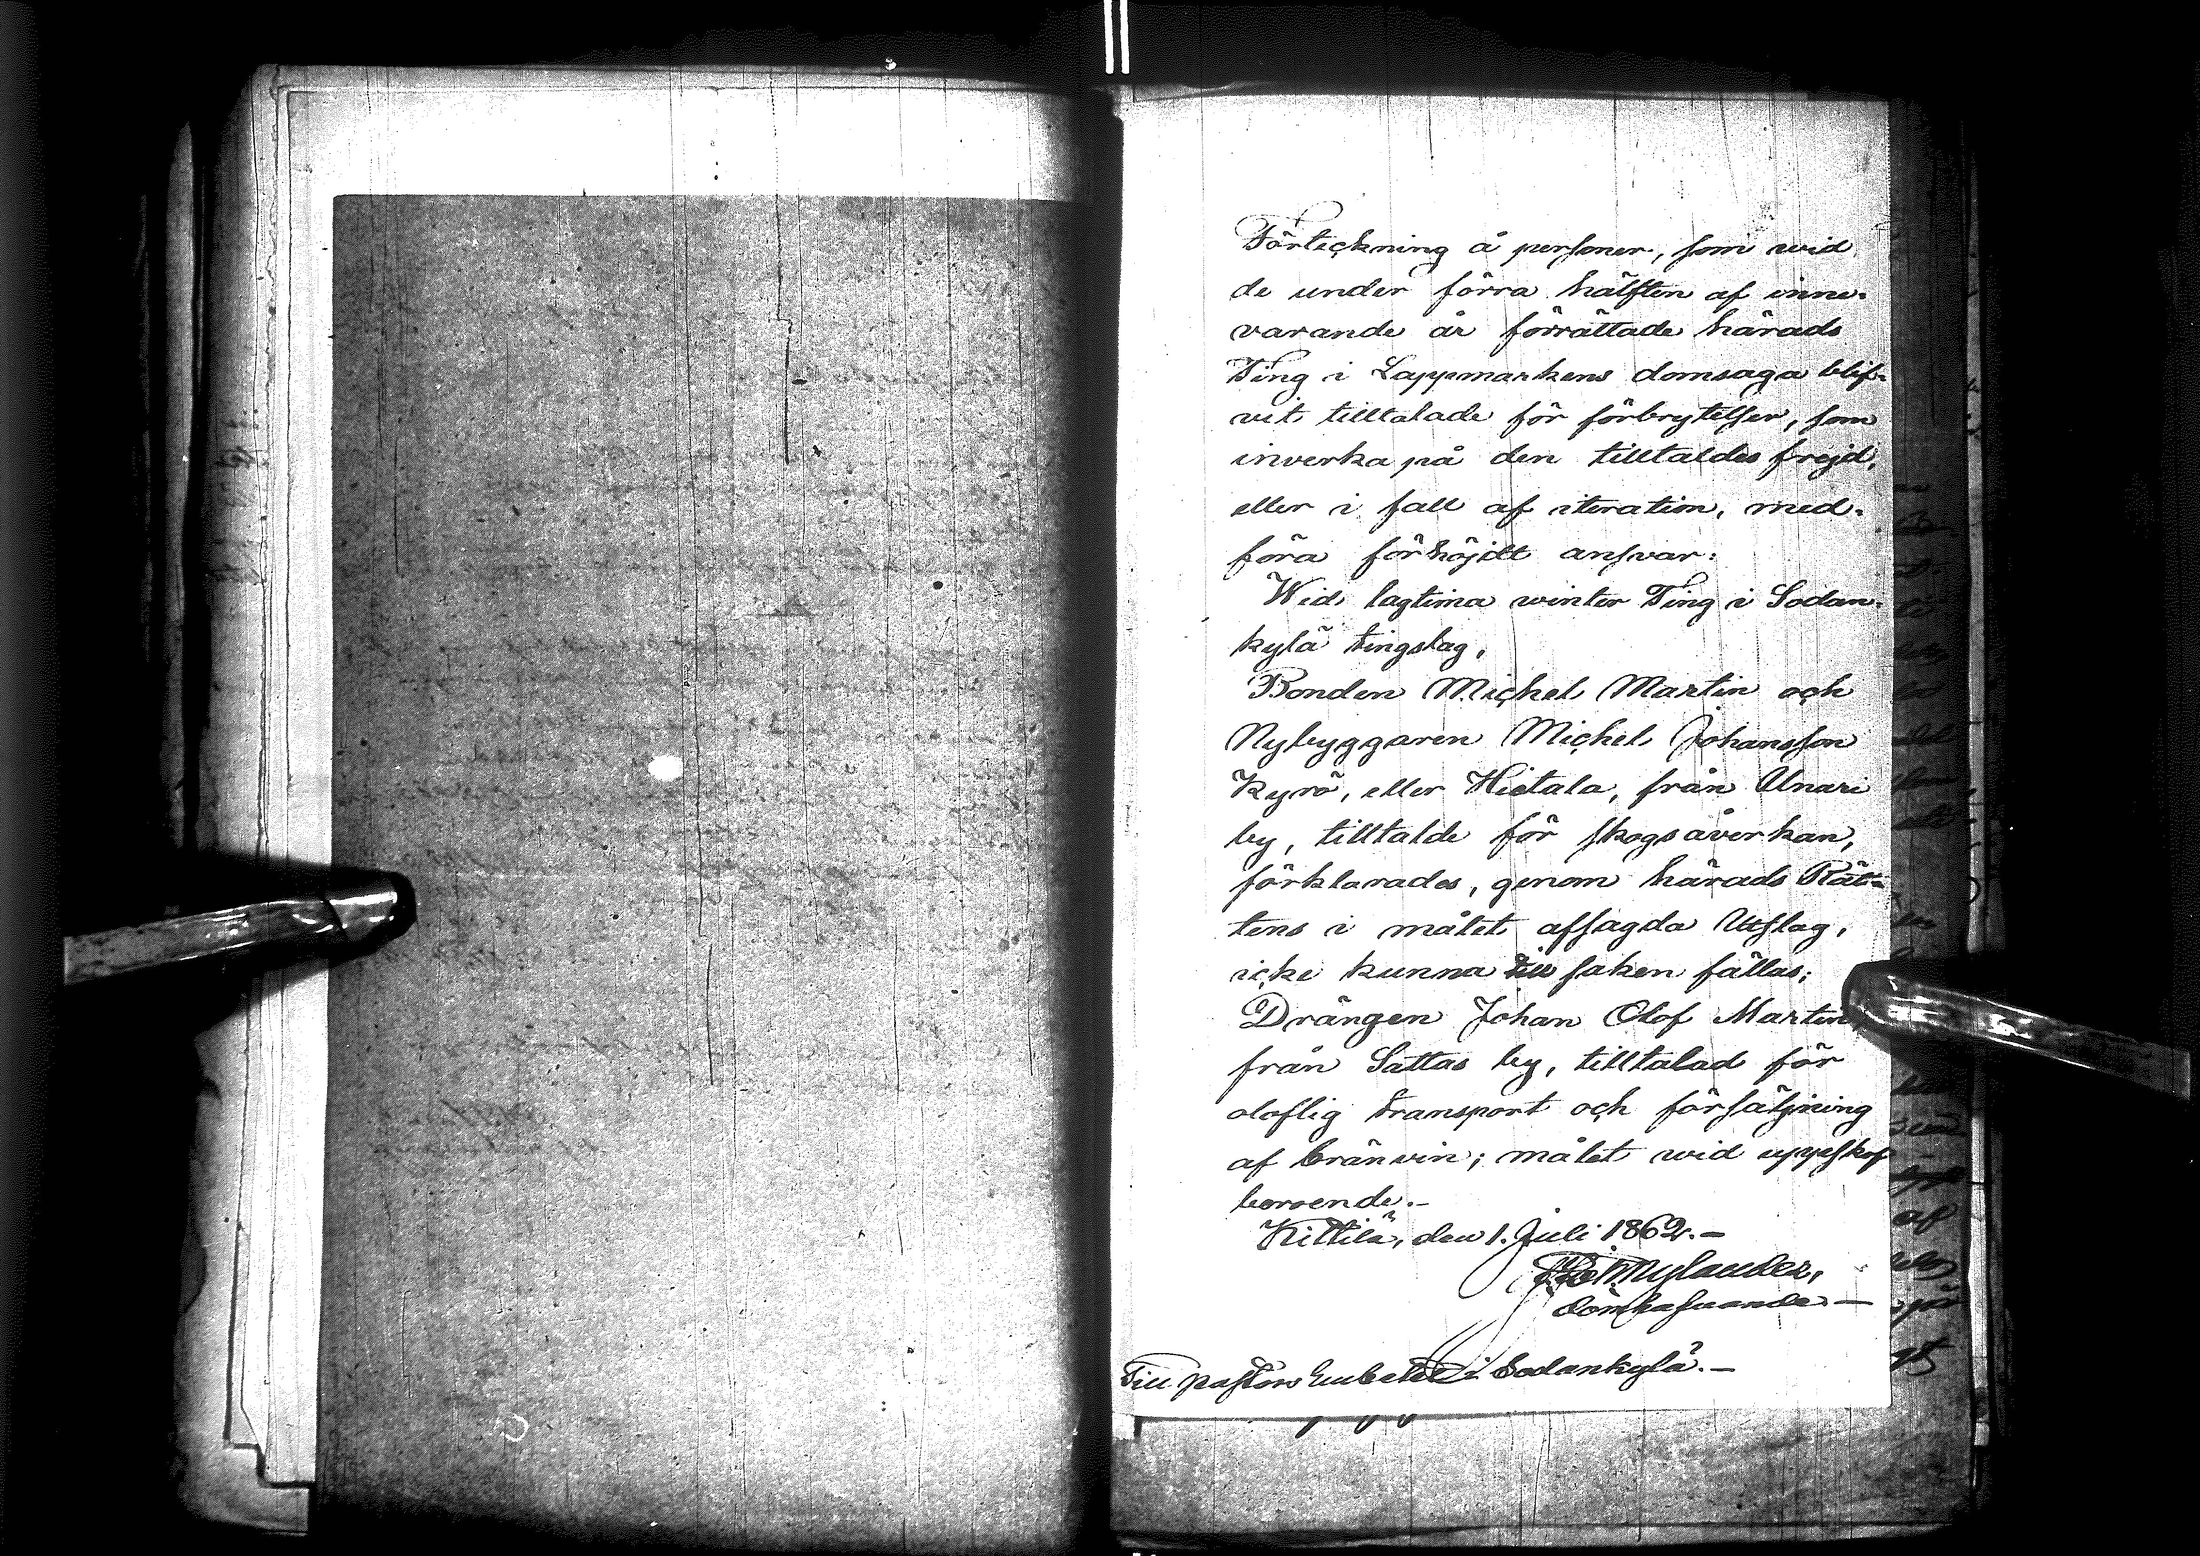 Förteckning å personer, som wid
de under förra hälften af inne-
varande år förrättade härads
Ting i Lappmarkens domsaga blif-
vit tilltalade för förbrytelser, som
inverka på den tilltaldes frejd,
eller i fall af iteration, med-
föra förhöjdt ansvar:
Wid lagtima winter Ting i Sodan-
kylä tingslag,
Bonden Michel Martin och
Nybyggaren Michel Johansson
Kyrö, eller Hietala, från Unari
by, tilltalde för skogsåverkan,
förklarades, genom härads Rät-
tens i målet afsagda Utslag,
icke kunna till saken fällas;
Drängen Johan Olof Martin,
från Sattas by, tilltalad för
olaflig transport och försäljning
af bränvin; målet wid uppskof
beroende.-
Kittilä, den 1. Juli 1862.-
Nylander,
domhafvande.-
Till pastors Embetet i Sodankylä.-